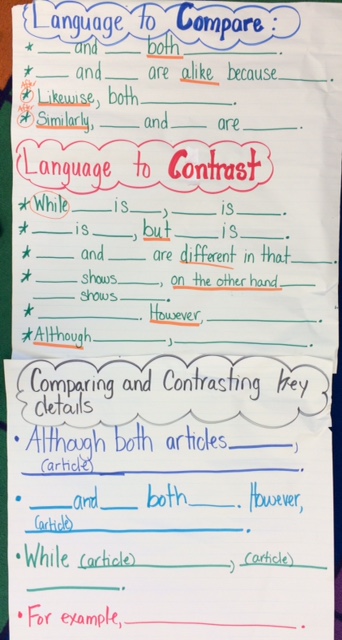 Language to Compare:
* ___ and ___ both ___.
* ___ and ___ are alike because ___.
* Likewise, both ___.
* Similarly, ___ and ___ are ___.
Language to Contrast
* While ___ is ___, ___ is ___.
* ___ is ___, but ___ is ___.
* ___ and ___ are different in that ___.
* ___ shows ___, on the other hand
___ shows ___.
* ___. However, ___.
* Although ___, ___.
Comparing and Contrasting key
details
• Although both articles ___,
(article) ___.
• ___ and ___ both ___. However,
(article) ___.
• While (article) ___, (article)
___.
• For example, ___.